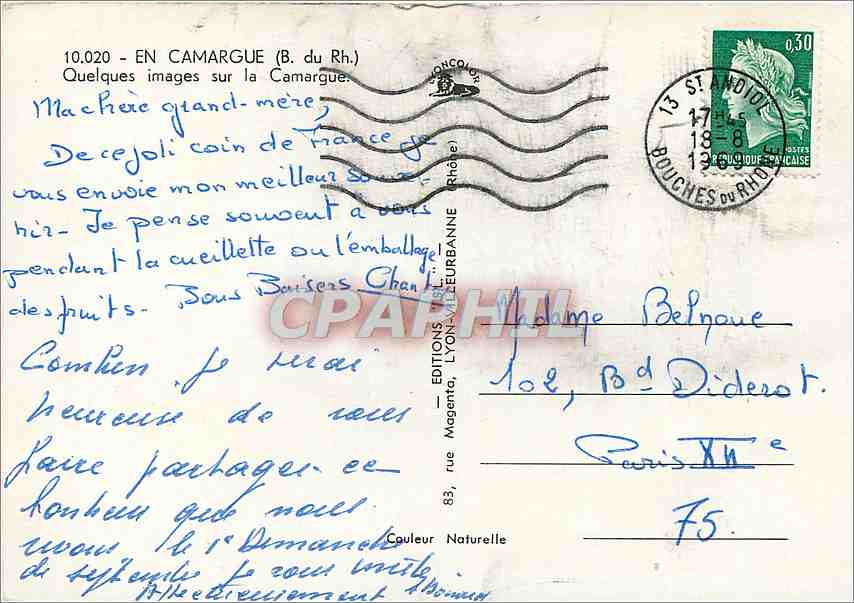 10.020 - EN CAMARGUE (B. du Rh.)
Quelques images sur la Camargue.
Ma chère grand-mère,
De ce joli coin de France je
vous envoie mon meilleur souve-
nir - Je pense souvent à vous
pendant la cueillette ou l'emballage
des fruits - Bons Baisers Chant
Combien je serai
heureuse de vous
faire partager ce
bonheur que nous
vivons le 1e Dimanche
de septembre je vous invite
Affectueusement
— EDITIONS
83, rue Magenta, LYON-VILLEURBANNE (Rhône)
Couleur Naturelle
0,30
POSTES
REPUBLIQUE FRANÇAISE
13 ST ANDIOL
17H45
18-8
BOUCHES DU RHONE
Madame Belnoue
102, Bd Diderot.
Paris XIIe
75.
CPAPHIL